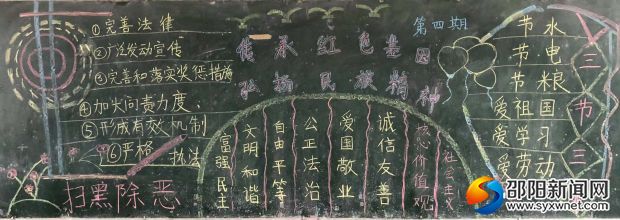 ①完善法律
②广泛发动宣传
③完善和落实奖惩措施
④加大问责力度、
⑤形成有效机制
⑥严格执法
扫黑除恶
第四期
传承红色基因
弘扬民族精神
富强民主
文明和谐
自由平等
公正法治
爱国敬业
诚信友善
核心价值观
社会主义
节水
节电
节粮
爱祖国
爱学习
爱劳动
三节三
邵阳新闻网
www.syxwnet.com